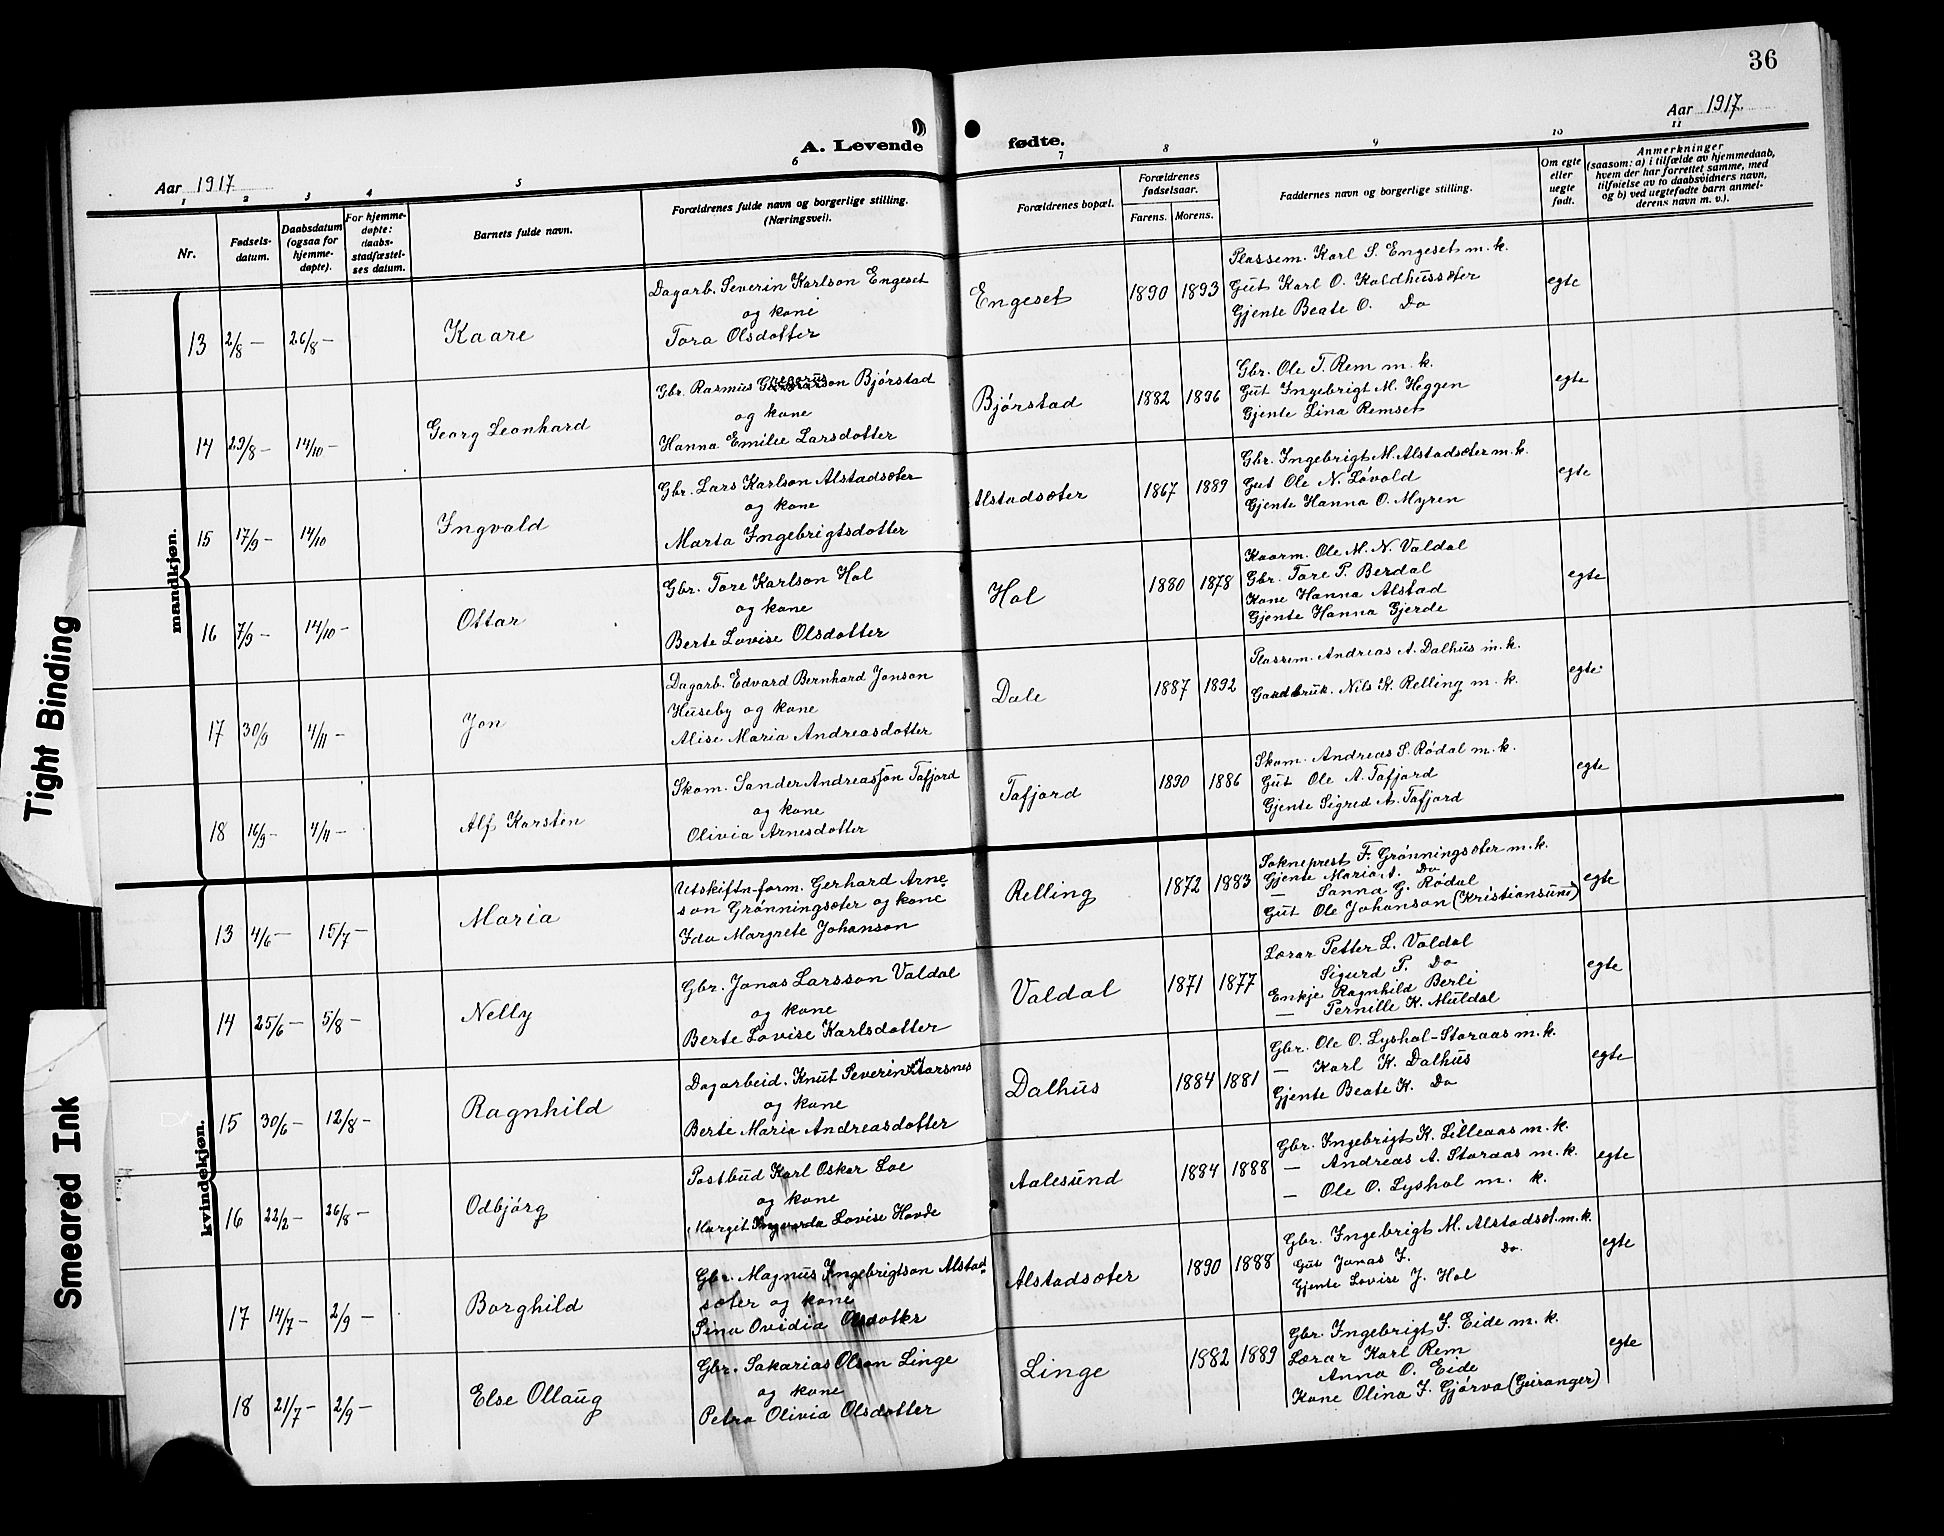 36
Aar 1917.
A. Levende
fødte.
Aar 1917
1 2 3 4 5 6 7 8 9 10 11
Nr.
Fødsels-
datum.
Daabsdatum
(ogsaa for
hjemme-
døpte).
For hjemme-
døpte:
daabs-
stadfæstel-
ses datum.
Barnets fulde navn.
Forældrenes fulde navn og borgerlige stilling.
(Næringsvei).
Forældrenes bopæl.
Forældrenes
fødselsaar.
Farens. Morens.
Faddernes navn og borgerlige stilling.
Om egte
eller
uegte
født.
Anmerkninger
(saasom: a) i tilfælde av hjemmedaab,
hvem der har forrettet samme, med
tilføielse av to daabsvidners navn,
og b) ved uegtefødte barn anmel-
derens navn m. v.).
mandkjøn.
13 2/8 — 26/8 — Kaare
Dagarb. Severin Karlson Engeset
og kone
Tora Olsdotter
Engeset 1890 1893
Plassem. Karl S. Engeset m. k.
Gut Karl O. Kaldhussæter
Gjente Beate O. Do
egte
14 29/8 — 14/10 — Georg Leonhard
Gbr. Rasmus Bjørstad
og kone
Hanna Emilie Larsdotter
Bjørstad 1882 1896
Gbr. Ole T. Rem m. k.
Gut Ingebrigt M. Heggen
Gjente Lina Remset
egte
15 17/9 — 14/10 Ingvald
Gbr. Lars Karlson Alstadsæter
og kone
Marta Ingebrigtsdotter
Alstadsæter 1867 1889
Gbr. Ingebrigt M. Alstadsæter m. k.
Gut Ole N. Løvold
Gjente Hanna O. Myren
egte
16 7/9 — 14/10 — Ottar
Gbr. Tore Karlson Hol
og kone
Berte Lovise Olsdotter
Hol 1880 1878
Kaarm. Ole M. N. Valdal
Gbr. Tore P. Berdal
Kone Hanna Alstad
Gjente Hanna Gjerde
egte
17 30/9 4/11 — Jon
Dagarb. Edvard Bernhard Jonson
Huseby og kone
Alise Maria Andreasdotter
Dale 1887 1892
Plassem. Andreas A. Dalhus m. k.
Gardbruk. Nils K. Relling m. k.
egte
18 16/9 — 4/11 — Alf Karsten
Skom. Sander Andreasson Tafjord
og kone
Olivia Arnesdotter
Tafjord 1890 1886
Skom. Andreas S. Rødal m. k.
Gut Ole A. Tafjord
Gjente Sigred A. Tafjord
egte
kvindekjøn.
13 4/6 — 15/7 — Maria
Utskiftn-form. Gerhard Arne-
son Grønningsæter og kone
Ida Margrete Johanson
Relling 1872 1883
Sokneprest F. Grønningsæter m. k.
Gjente Maria A. Do
— Sanna G. Rødal
Gut Ole Johanson (Kristiansund)
egte
14 25/6 — 5/8 — Nelly
Gbr. Jonas Larsson Valdal
og kone
Berte Lovise Karlsdotter
Valdal 1871 1877
Lærar Petter L. Valdal
Sigurd P. Do
Enkje Ragnhild Berli
— Pernille K. Muldal
egte
15 30/6 — 12/8 — Ragnhild
Dagarbeid. Knut Severin Storsnes
og kone
Berte Maria Andreasdotter
Dalhus 1884 1881
Gbr. Ole O. Lyshol-Storaas m. k.
— Karl K. Dalhus
Gjente Beate K. Do
egte
16 22/2 — 26/8 — Odbjørg
Postbud Karl Oskar Loe
og kone
Margit Ingvarda Lovise Hovde
Aalesund 1884 1888
Gbr. Ingebrigt K. Lilleaas m. k.
— Andreas A. Storaas m. k.
— Ole O. Lyshol m. k.
egte
17 14/7 — 2/9 — Borghild
Gbr. Magnus Ingebrigtson Alstad-
sæter og kone
Sina Ovidia Olsdotter
Alstadsæter 1890 1888
Gbr. Ingebrigt M. Alstadsæt. m. k.
Gut Jonas I. Do
Gjente Lovise J. Hol
egte
18 21/7 — 2/9 — Else Ollaug
Gbr. Sakarias Olson Linge
og kone
Petra Olivia Olsdotter
Linge 1882 1889
Gbr. Ingebrigt J. Eide m. k.
Lærar Karl Rem
Anna O. Eide
Kone Olina J. Gjørva (Geiranger)
egte
Tight Binding
Smeared Ink